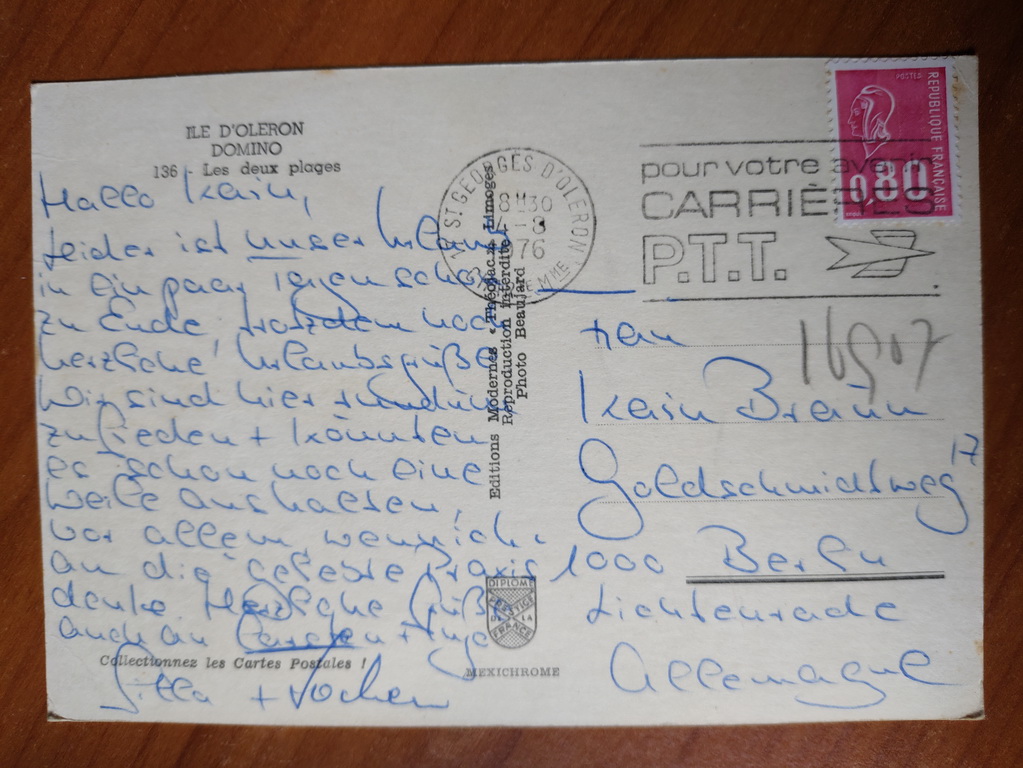 ILE D'OLERON
DOMINO
136 - Les deux plages
Hallo Karin,
leider ist unser Urlaub
in ein paar Tagen schon
zu Ende, trotzdem noch
herzliche Urlaubsgrüße
Wir sind hier rundum
zufrieden + könnten
es schon noch eine
Weile aushalten,
vor allem wenn ich
an die "geliebte Praxis
denke Herzliche Grüße
auch an Carsten + Inge
+ Jochen
Collectionnez les Cartes Postales !
Editions Modernes « Théojac », Limoges
Reproduction interdite
Photo Beaujard
DIPLOME
PRESTIGE
DE LA
FRANCE
MEXICHROME
ST GEORGES D'OLERON
8H30
-8
76
MME
pour votre avenir
CARRIÈRES
P.T.T.
POSTES
REPUBLIQUE FRANÇAISE
0,80
Frau
Karin Bräun
Goldschmidtweg 17
1000 Berlin
Lichtenrade
Allemagne